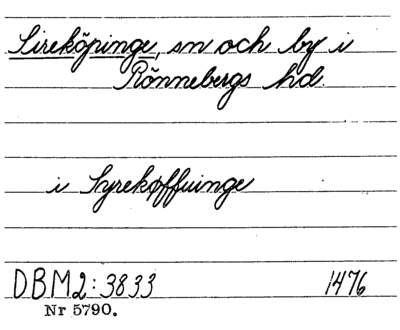 Sireköpinge, sn och by i
Rönnebergs hd.
i Syrekøffuinge
DBM2:3833 1476
Nr 5790.